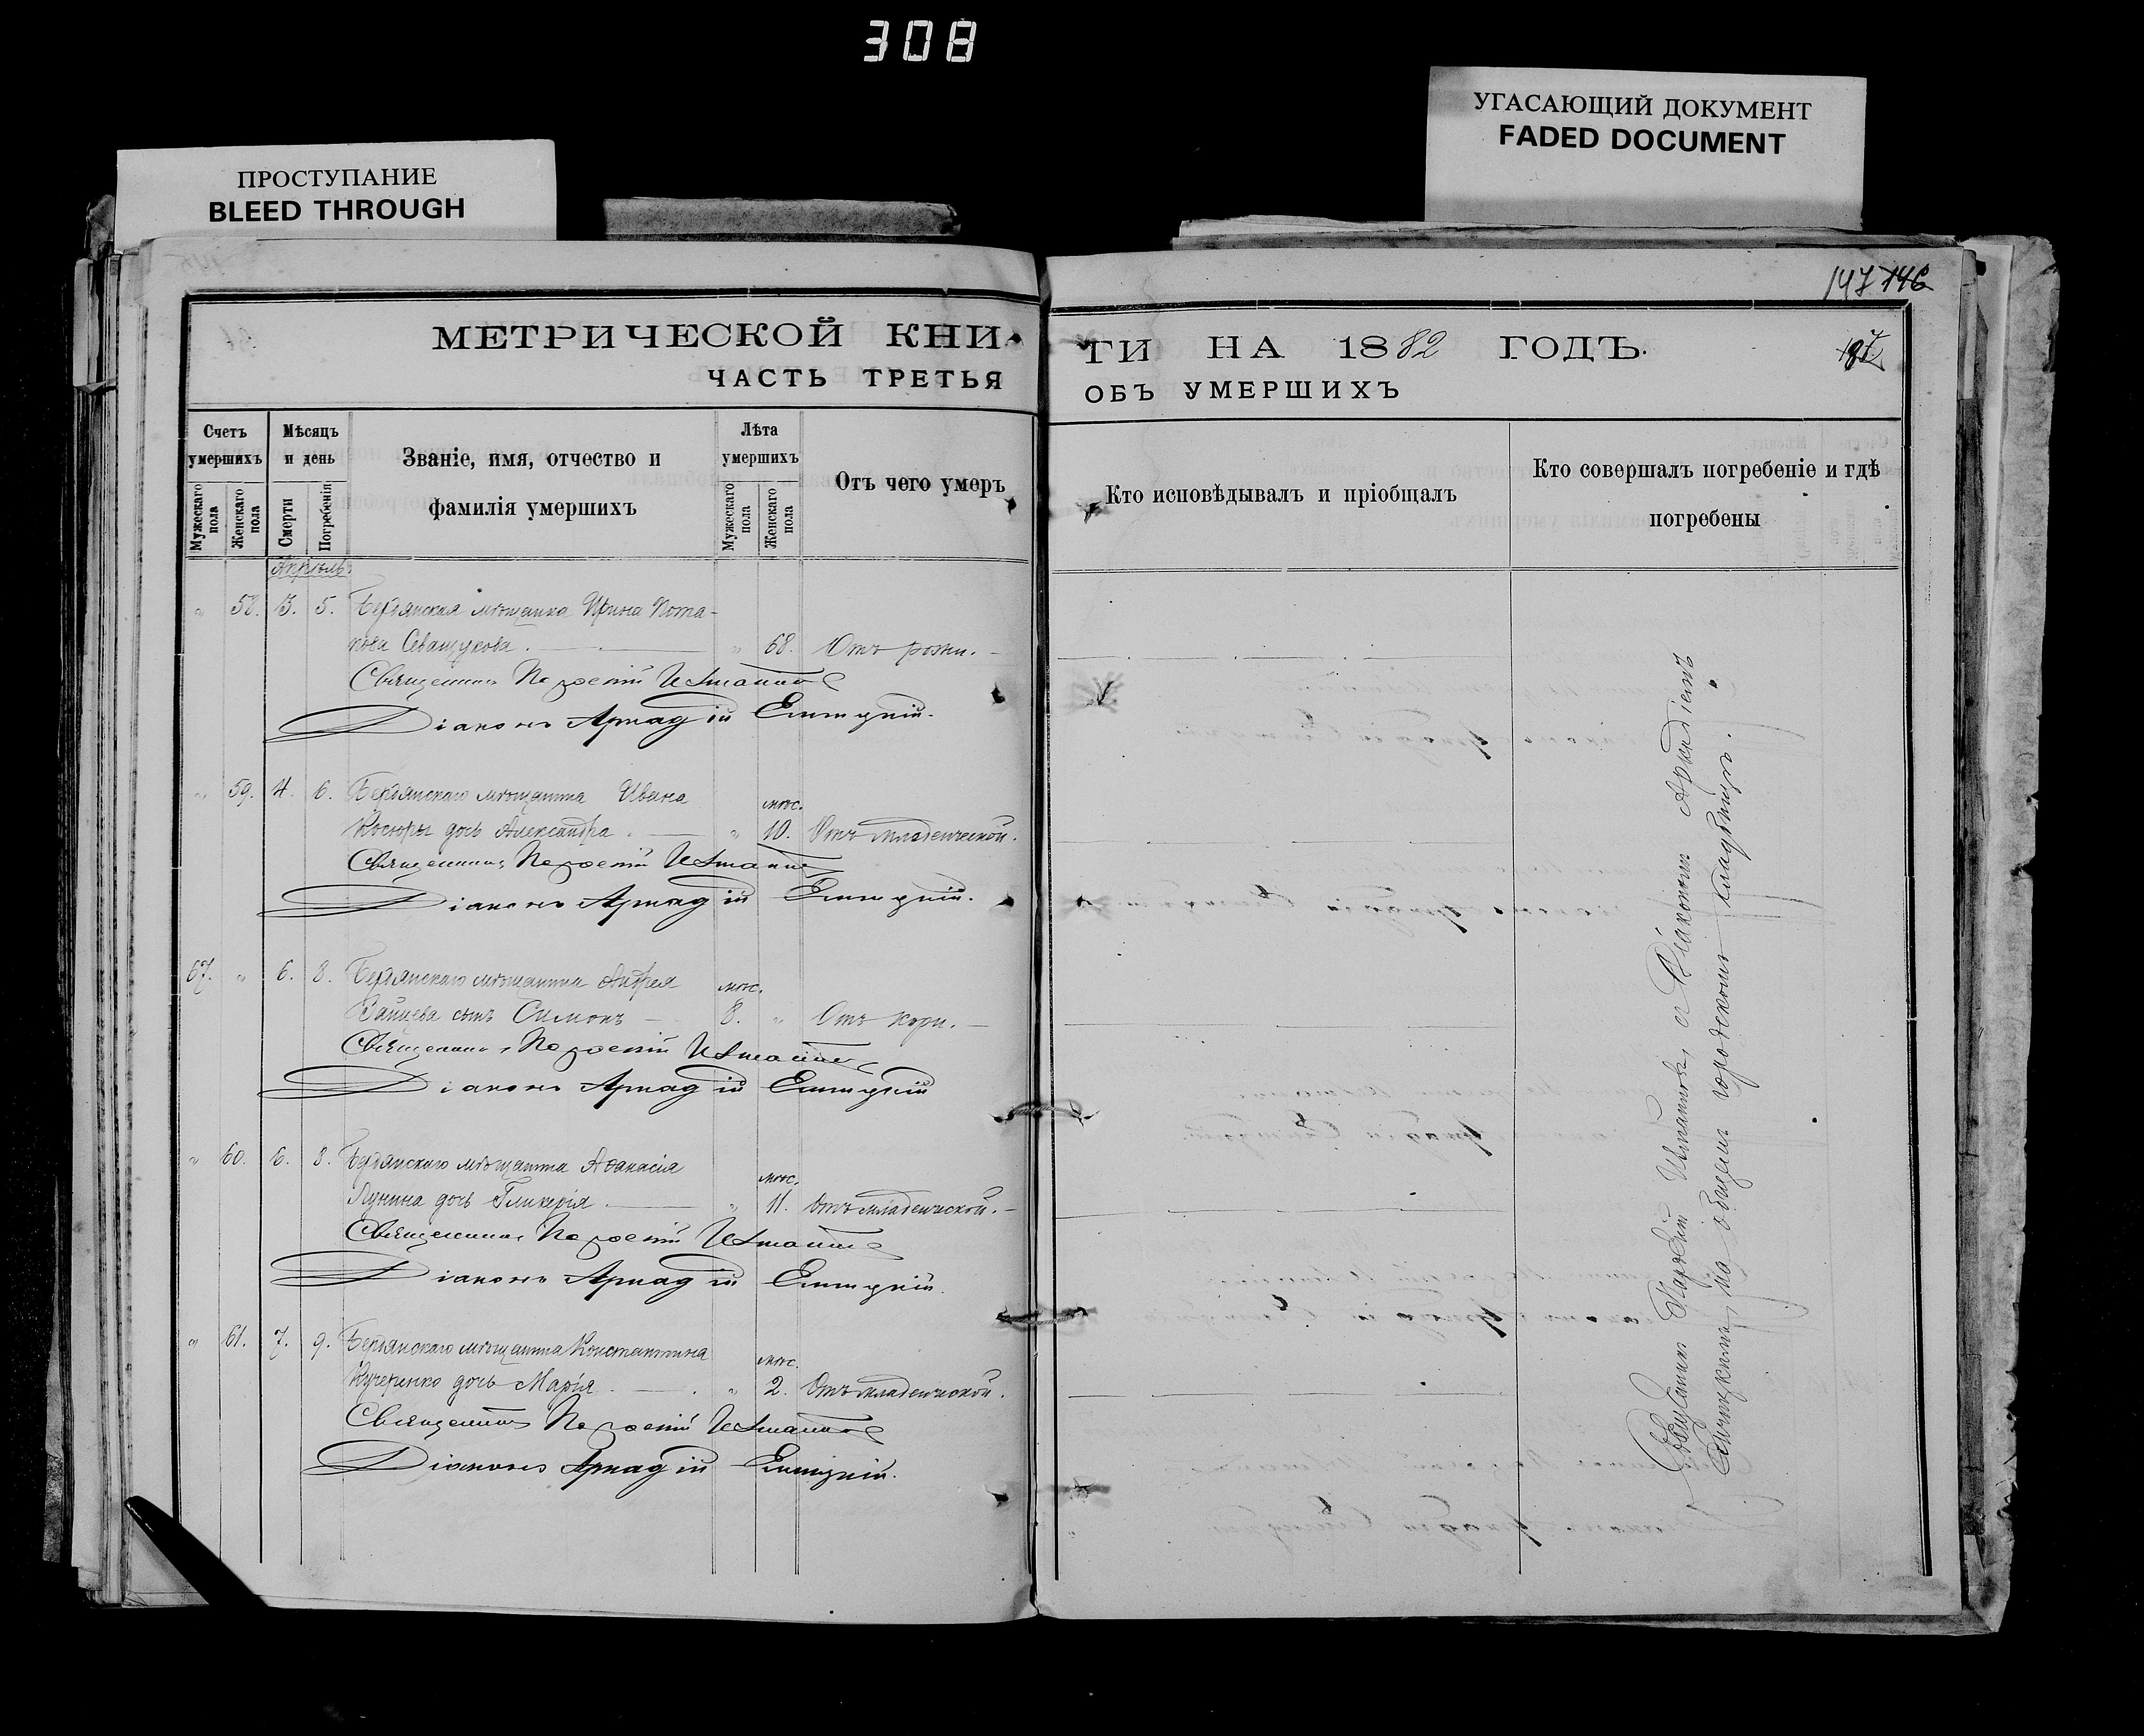 308
ПРОСТУПАНИЕ
BLEED THROUGH
УГАСАЮЩИЙ ДОКУМЕНТ
FADED DOCUMENT
147 146
МЕТРИЧЕСКОЙ КНИ
ЧАСТЬ ТРЕТЬЯ
ГИ НА 1882 ГОДЪ.
ОБЪ УМЕРШИХЪ
Счетъ умершихъ
Мужескаго пола
Женскаго пола
Мѣсяцъ и день
Смерти
Погребенія
Званіе, имя, отчество и
фамилія умершихъ
Лѣта умершихъ
Мужескаго пола
Женскаго пола
Отъ чего умеръ
Кто исповѣдывалъ и пріобщалъ
Кто совершалъ погребеніе и гдѣ
погребены
Апрѣль
" 58. 3. 5. Бердянская мѣщанка Ирина Пота-
пова " 68. Отъ рожи.
Священникъ
Діаконъ Аркадій
" 59. 4. 6. Бердянскаго мѣщанина Ивана
Косюры дочь Александра. " мѣс. 10. Отъ младенческой.
Священникъ
Діаконъ Аркадій
67. " 6. 8. Бердянскаго мѣщанина Андрея
Зайцева сынъ Симонъ мѣс. 8. " Отъ кори.
Священникъ
Діаконъ Аркадій
" 60. 6. 8. Бердянскаго мѣщанина Аѳанасія
Лунина дочь Гликерія. " мѣс. 11. Отъ младенческой.
Священникъ
Діаконъ Аркадій
" 61. 7. 9. Бердянскаго мѣщанина Константина
Кучеренко дочь Марія. " мѣс. 2. Отъ младенческой.
Священникъ
Діаконъ Аркадій
Священникъ съ Діакономъ Аркадіемъ
на общемъ городскомъ кладбищѣ.